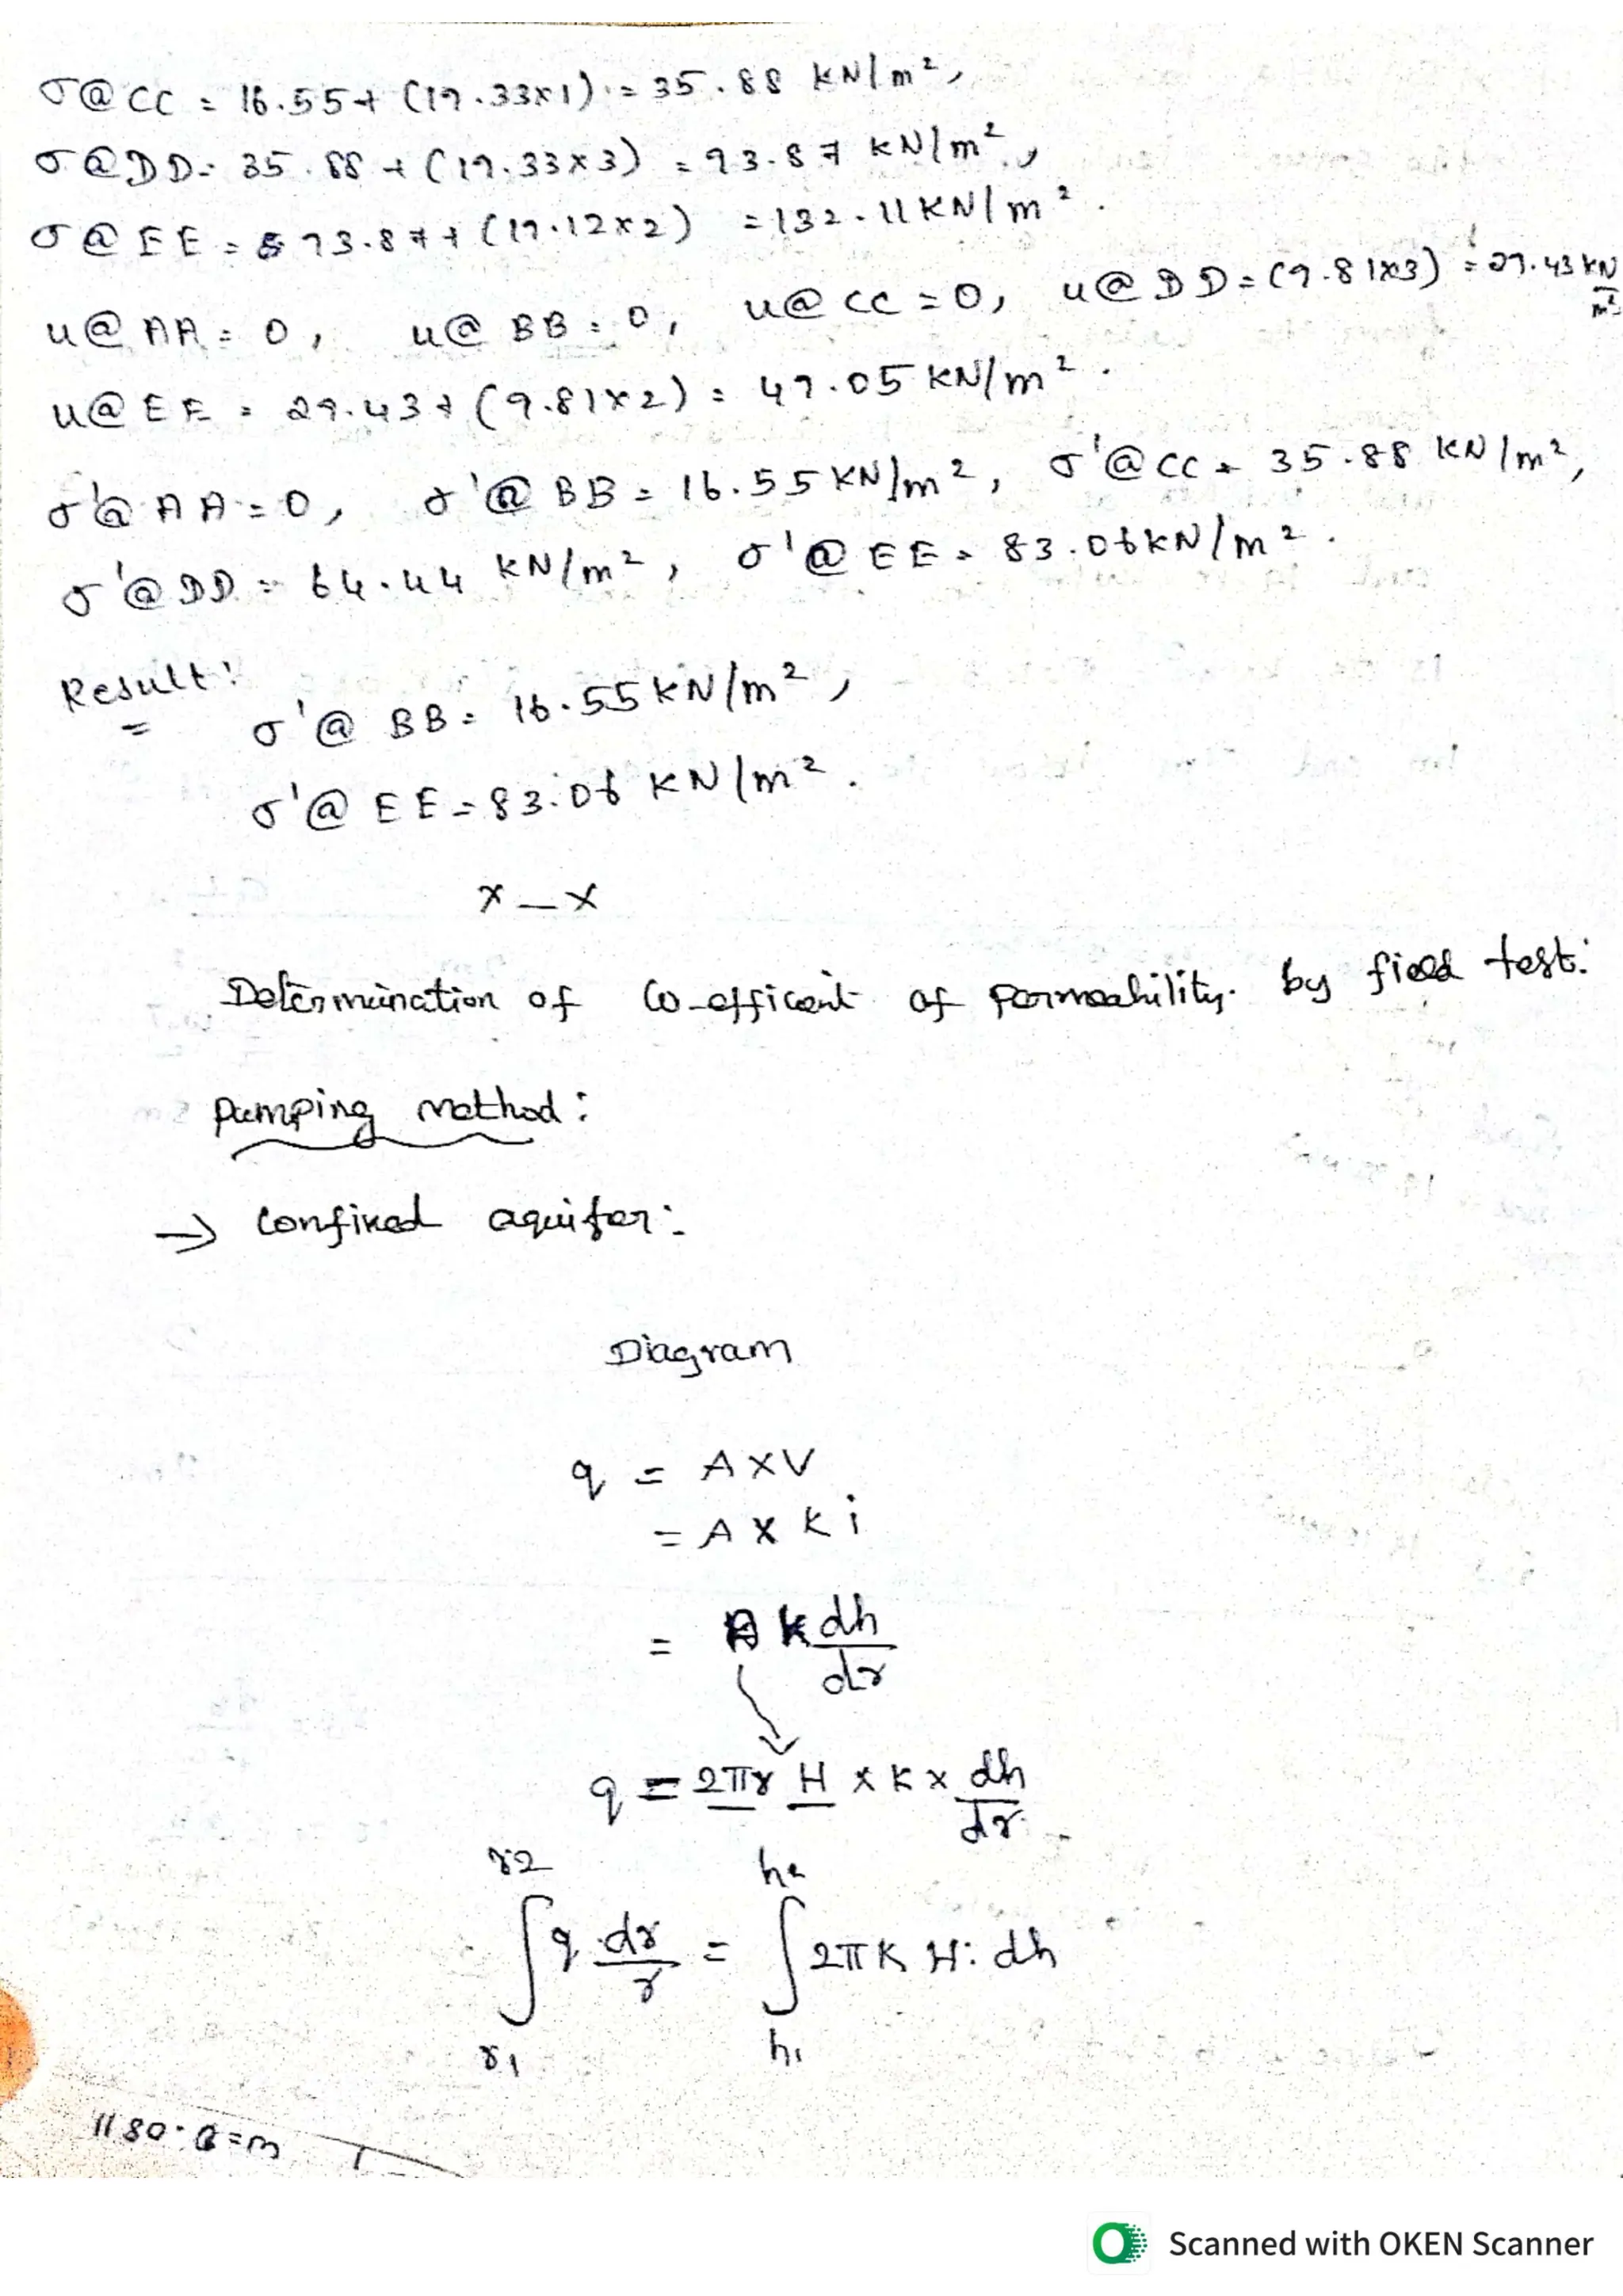 σ@ CC = 16.55+ (19.33×1) = 35.88 KN/m²,
σ@DD = 35.88 + (19.33×3) = 93.87 KN/m²,
σ@ EE = 93.87+ (19.12×2) = 132.11KN/m².
u@ AA = 0, u@ BB = 0, u@ CC = 0, u@ DD = (9.81×3) = 29.43 KN/m²
u@ EE = 29.43+ (9.81×2) = 49.05 KN/m².
σ'@ AA = 0, σ'@ BB = 16.55KN/m², σ'@ CC = 35.88 KN/m²,
σ'@ DD = 64.44 KN/m², σ'@ EE = 83.06KN/m².
Result:
σ'@ BB = 16.55KN/m²,
σ'@ EE = 83.06 KN/m².
x — x
Determination of Co-efficent of permeability by field test:
Pumping method:
→ Confined aquifer:
Diagram
q = A×V
= A × K i
= A k dh/dr
q = 2πr H × K × dh/dr
∫_{r1}^{r2} q dr/r = ∫_{h1}^{h2} 2πK H. dh
Scanned with OKEN Scanner